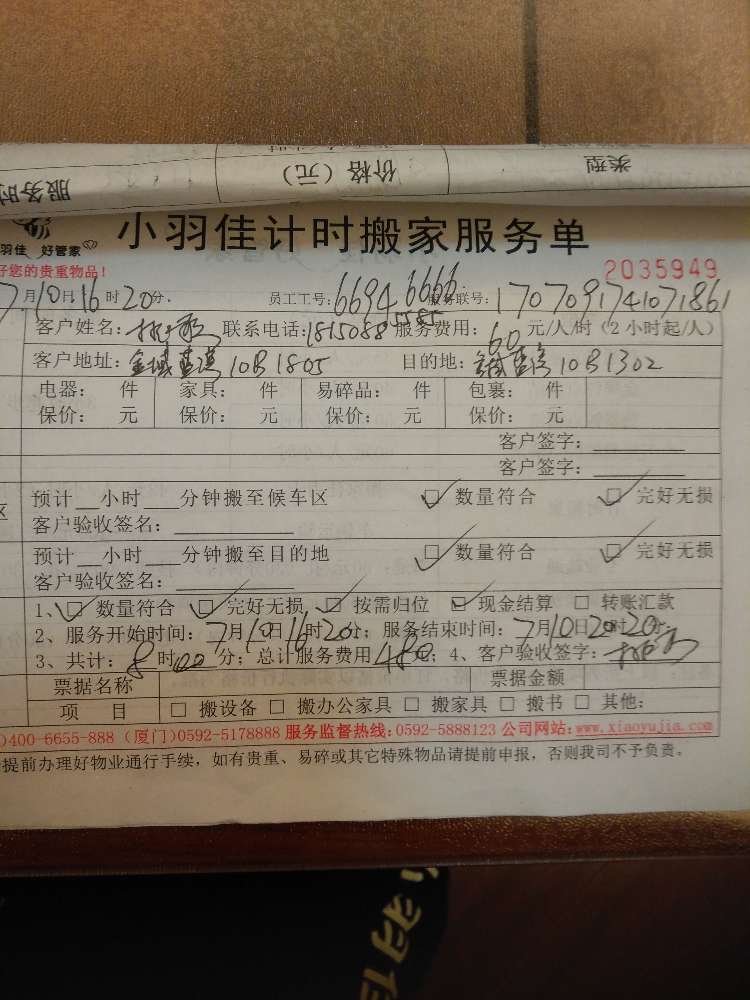 服务时
价格（元）
类型
羽佳 好管家
小羽佳计时搬家服务单
好您的贵重物品！
2035949
7月10日16时20分.
员工工号：6694 6666
服务联号：1707091741071861
客户姓名： 联系电话：1815088 5585 服务费用：60元/人/时（2小时起/人）
客户地址：金域蓝湾10B1805 目的地：金域蓝湾10B1302
电器： 件 家具： 件 易碎品： 件 包裹： 件
保价： 元 保价： 元 保价： 元 保价： 元
客户签字：
客户签字：
区
预计__小时___分钟搬至候车区 ☑ 数量符合 ☑ 完好无损
客户验收签名：
预计__小时___分钟搬至目的地 ☑ 数量符合 ☑ 完好无损
客户验收签名：
1、☑ 数量符合 ☑ 完好无损 ☑ 按需归位 ☑ 现金结算 □ 转账汇款
2、服务开始时间：7月10日16时20分；服务结束时间：7月10日20时20分；
3、共计：8时00分；总计服务费用480元；4、客户验收签字：
票据名称 票据金额
项 目 □ 搬设备 □ 搬办公家具 □ 搬家具 □ 搬书 □ 其他：
)400-6655-888（厦门)0592-5178888 服务监督热线:0592-5888123 公司网站:www.xiaoyujia.com
提前办理好物业通行手续，如有贵重、易碎或其它特殊物品请提前申报，否则我司不予负责。
小羽佳